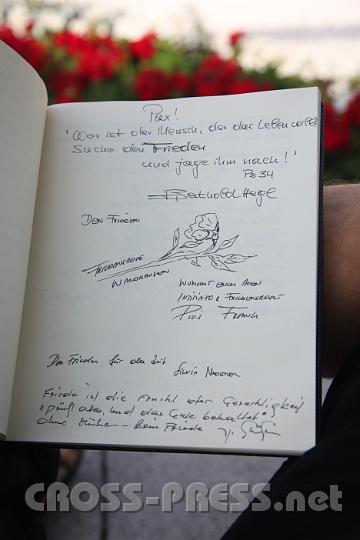 Pax!
"Wer ist der Mensch, der das Leben
Suche den Frieden
und jage ihm nach!"
Ps 34
Berthold
Den Frieden
Friedensrose
Waldhausen
wünscht euch allen
Initiator Friedensrose
Pius Frank
Den Frieden für die Zeit
Friede ist die Frucht der Gerechtigkeit
und das Gute behaltet"
ohne Mühen – kein Friede
CROSS-PRESS.net